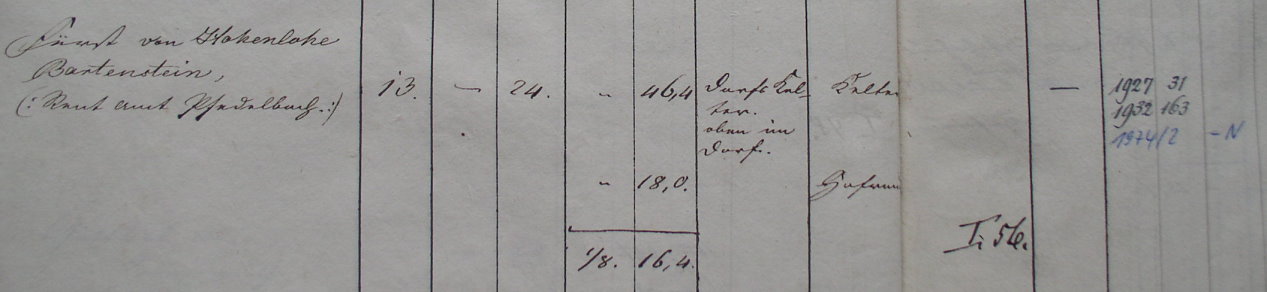 Fürst von Hohenlohe
Bartenstein,
(: Rent amt Pfedelbach. :)
13. — 24. „ 46,4 Dorf Kel- Kelter — 1927 31
ter. 1932 163
oben im 1974/2 - N
Dorf.
„ 18,0. Hofraum
I, 56.
1/8. 16,4.